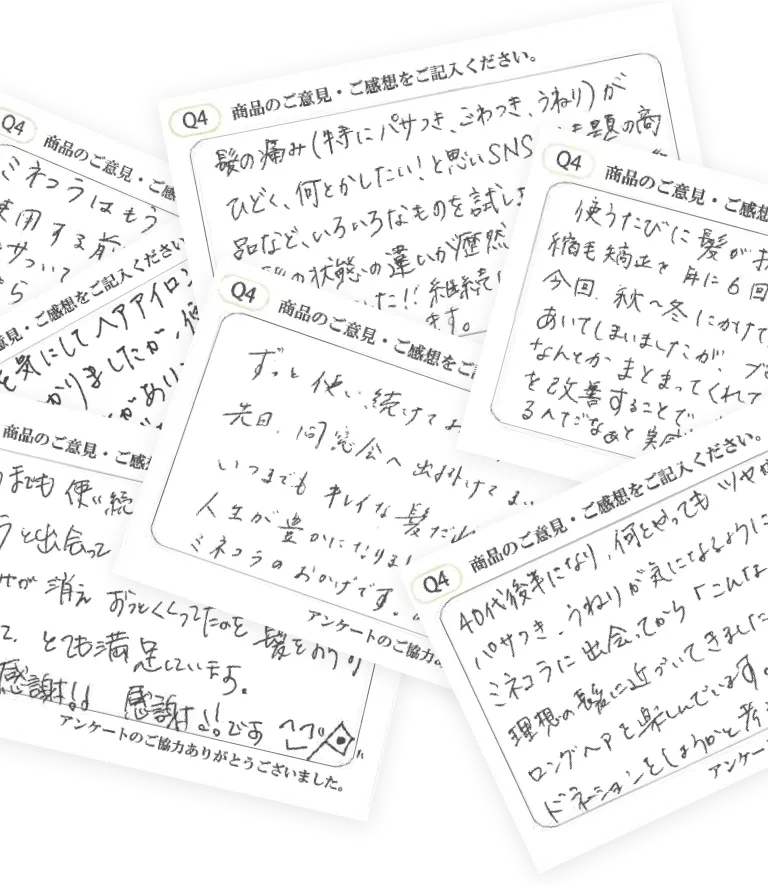 Q4 商品のご意見・ご感想をご記入ください。
髪の痛み(特にパサつき、ごわつき、うねり)が
ひどく、何とかしたい!と思いSNS 題の商
品など、いろいろなものを試し
の状態の違いが歴然
た!! 継続し
ます。
Q4 商品のご意見・ご感
ミネコラはもう
使用する前
サついて
ら
Q4 商品のご意見・ご感想
使うたびに髪が
縮毛矯正を 年に6回
今回、秋〜冬にかけて
あいてしまいましたが、
なんとか まとまってくれて
を改善することで
るんだなぁと 実感
意見・ご感想をご記入ください
を気にしてヘアアイロン
かりましたが、
があい
Q4 商品のご意見・ご感想をご記
ずっと使い続けてお
先日、同窓会へ出掛けてまい
いつまでもキレイな髪だと
人生が豊かになりまし
ミネコラのおかげです。
アンケートのご協力あ
商品のご意見・ご感想
までも使い続
と出会って
せが消え おっくくってたのを 髪をおろす
て、とても満足しています。
感謝!! 感謝!!です
アンケートのご協力ありがとうございました。
Q4 商品のご意見・ご感想をご記入ください。
40代後半になり、何をやっても ツヤ
パサつき、うねりが気になるように
ミネコラに出会ってから「こんな
理想の髪に近づいてきました
ロングヘアを楽しんでいます。
ドネーションをしようかと考
アンケート